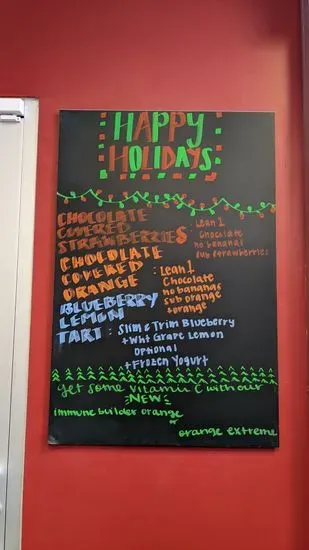 HAPPY
HOLIDAYS
CHOCOLATE
COVERED
STRAWBERRIES : Lean 1
Chocolate
no bananas
sub strawberries
CHOCOLATE
COVERED
ORANGE : Lean 1
Chocolate
no bananas
sub orange
+orange
BLUEBERRY
LEMON
TART : Slim & Trim Blueberry
+ Wht Grape Lemon
Optional
+ Frozen Yogurt
get some Vitamin C with our
NEW
immune builder orange
or
orange extreme